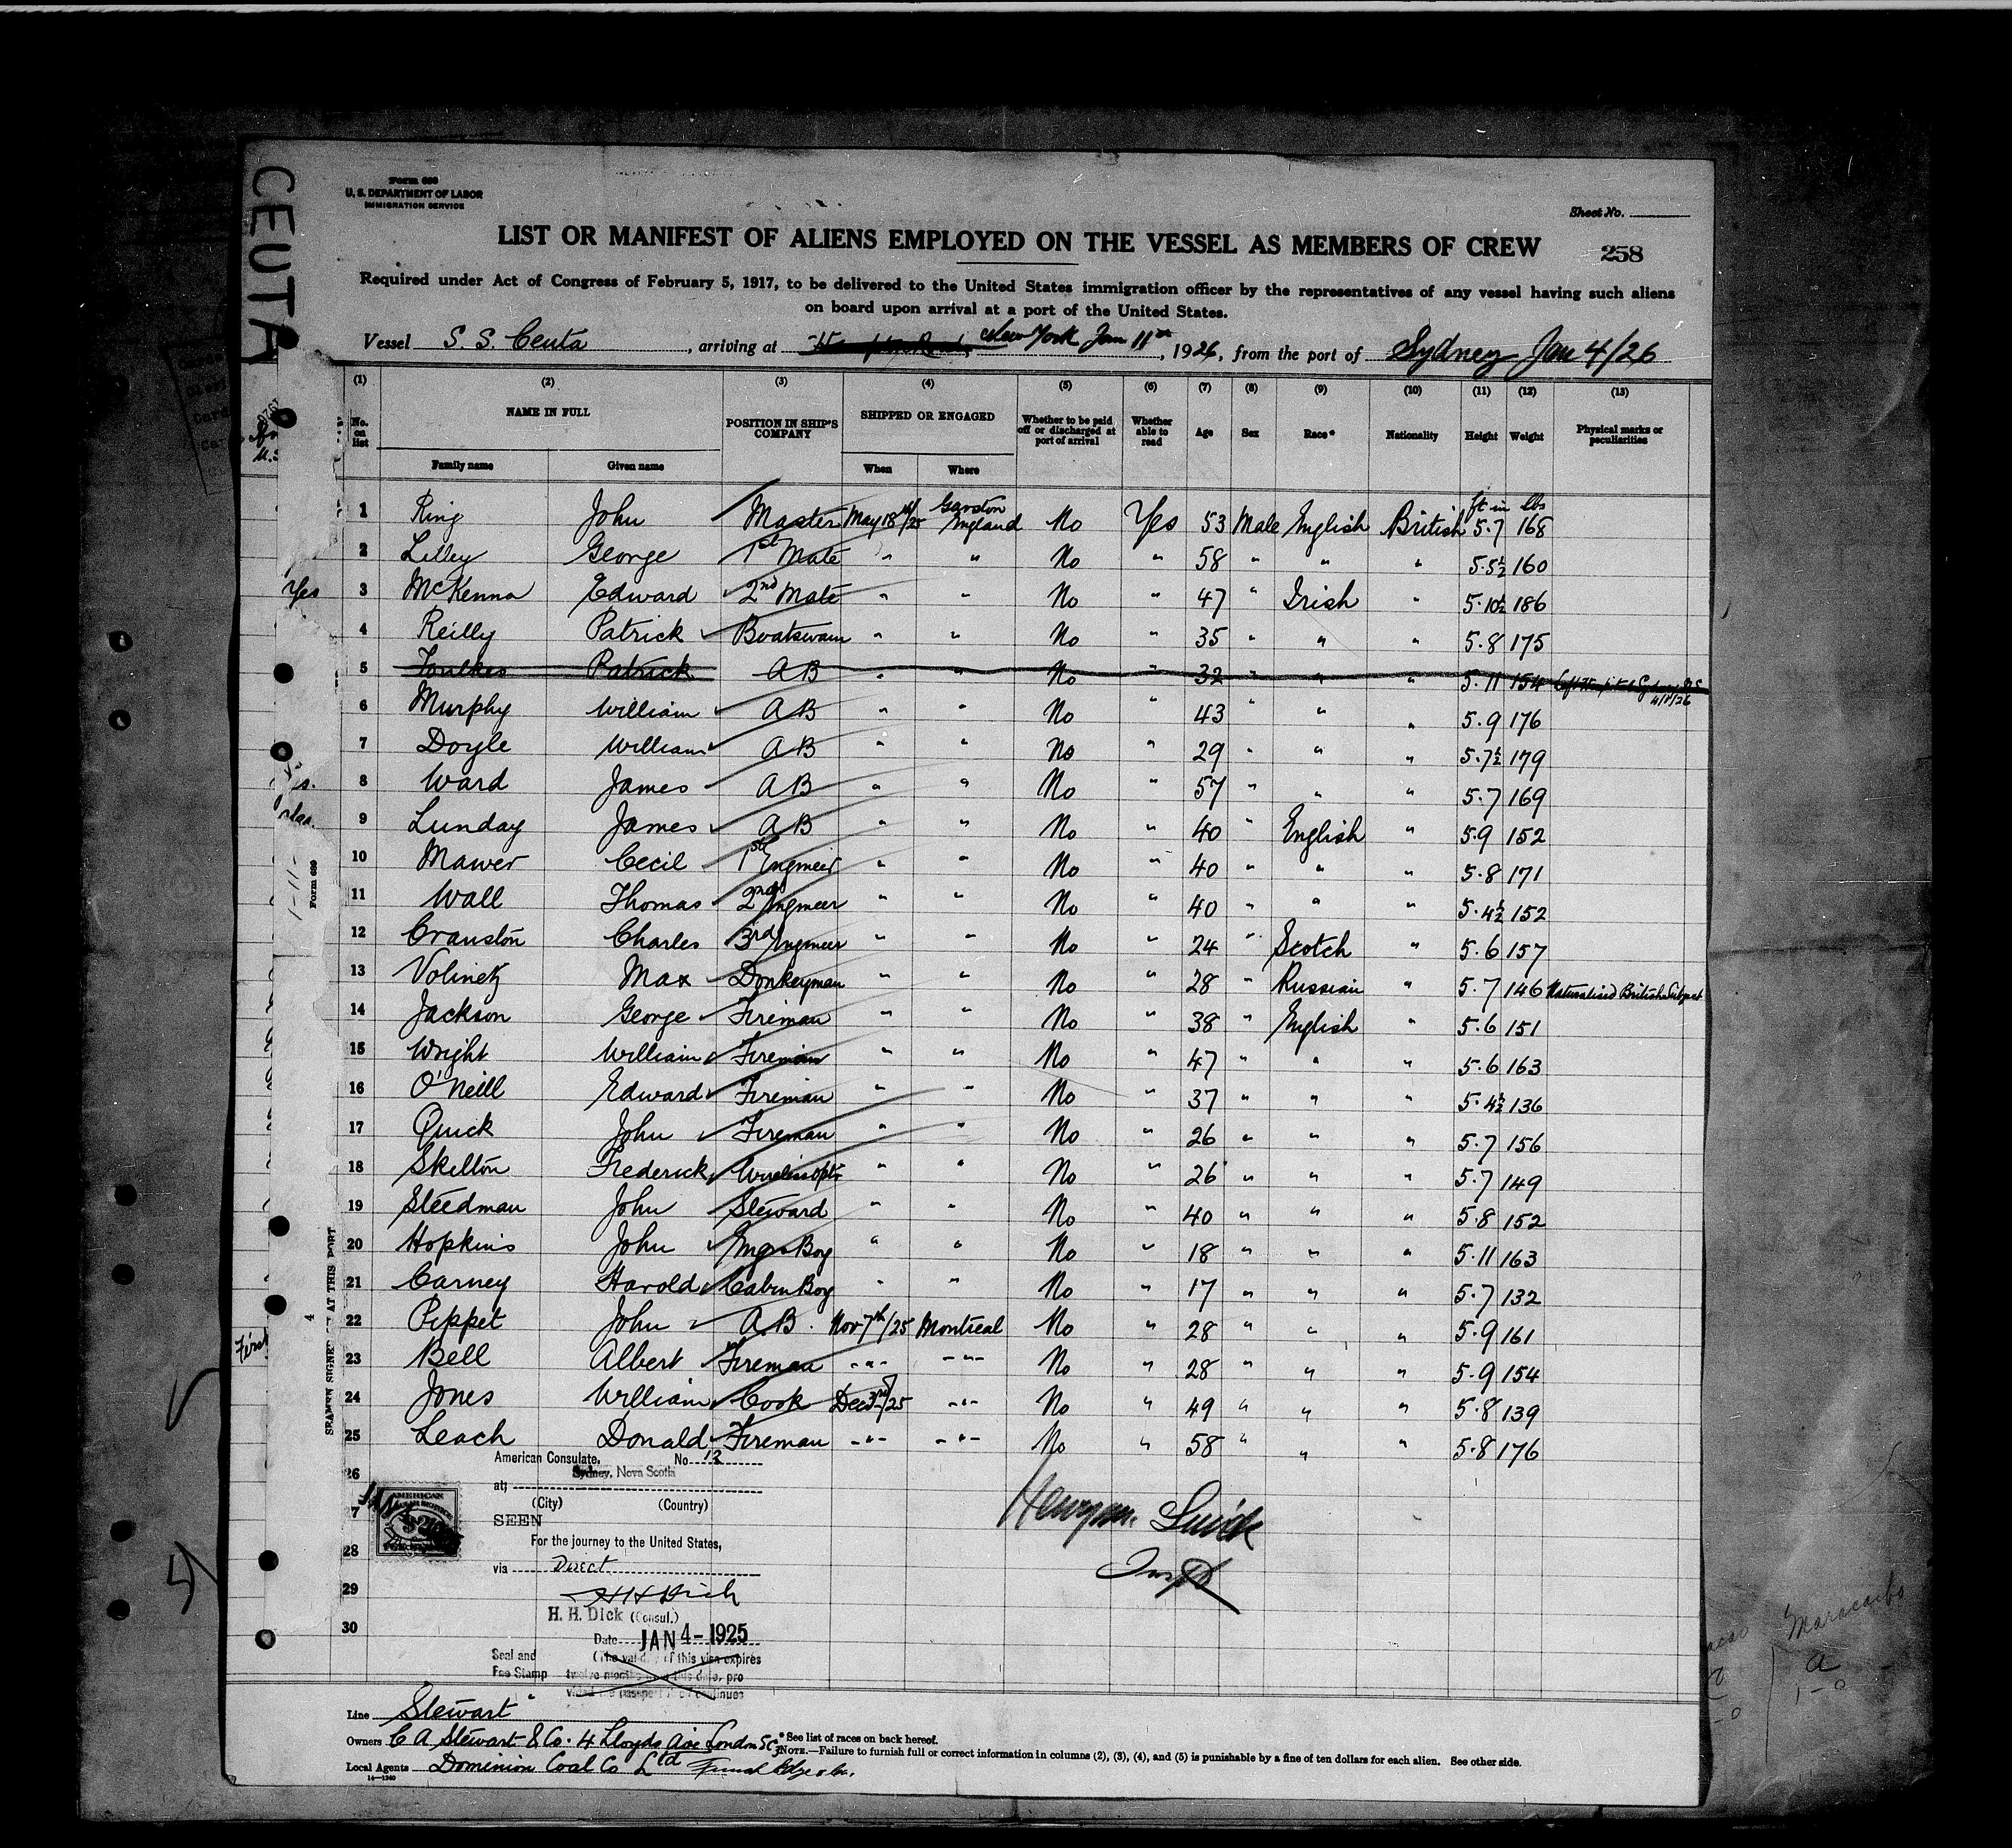 CEUTA
Form 680
U. S. DEPARTMENT OF LABOR
IMMIGRATION SERVICE
Sheet No.
LIST OR MANIFEST OF ALIENS EMPLOYED ON THE VESSEL AS MEMBERS OF CREW
258
Required under Act of Congress of February 5, 1917, to be delivered to the United States immigration officer by the representatives of any vessel having such aliens
on board upon arrival at a port of the United States.
Vessel S. S. Ceuta, arriving at New York Jan 11th, 1926, from the port of Sydney Jan 4/26
(1) (2) (3) (4) (5) (6) (7) (8) (9) (10) (11) (12) (13)
No. on list NAME IN FULL POSITION IN SHIP'S COMPANY SHIPPED OR ENGAGED Whether to be paid off or discharged at port of arrival Whether able to read Age Sex Race* Nationality Height Weight Physical marks or peculiarities
Family name Given name When Where
ft in lbs
1 Ring John Master May 18th/25 Garston England No Yes 53 Male English British 5.7 168
2 Lilley George 1st Mate " " No " 58 " " " 5.5½ 160
Yes 3 McKenna Edward 2nd Mate " " No " 47 " Irish " 5.10½ 186
4 Reilly Patrick Boatswain " " No " 35 " " " 5.8 175
5 Foulkes Patrick AB " " No " 32 " " " 5.11 154
6 Murphy William AB " " No " 43 " " " 5.9 176
7 Doyle William AB " " No " 29 " " " 5.7½ 179
8 Ward James AB " " No " 57 " " " 5.7 169
9 Lunday James AB " " No " 40 " English " 5.9 152
10 Mawer Cecil 1st Engineer " " No " 40 " " " 5.8 171
11 Wall Thomas 2nd Engineer " " No " 40 " " " 5.4½ 152
12 Cranston Charles 3rd Engineer " " No " 24 " Scotch " 5.6 157
13 Volinetz Max Donkeyman " " No " 28 " Russian " 5.7 146 Naturalised British Subject
14 Jackson George Fireman " " No " 38 " English " 5.6 151
15 Wright William Fireman " " No " 47 " " " 5.6 163
16 O'Neill Edward Fireman " " No " 37 " " " 5.4½ 136
17 Quick John Fireman " " No " 26 " " " 5.7 156
18 Skelton Frederick Wireless Optr " " No " 26 " " " 5.7 149
19 Steedman John Steward " " No " 40 " " " 5.8 152
20 Hopkins John Engrs Boy " " No " 18 " " " 5.11 163
21 Carney Harold Cabin Boy " " No " 17 " " " 5.7 132
22 Pippet John A.B. Nov 7th/25 Montreal No " 28 " " " 5.9 161
23 Bell Albert Fireman -"- -"- No " 28 " " " 5.9 154
24 Jones William Cook Dec 3rd/25 -"- No " 49 " " " 5.8 139
25 Leach Donald Fireman -"- -"- No " 58 " " " 5.8 176
26
27
28
29
30
American Consulate, No 12
Sydney, Nova Scotia
at;
(City) (Country)
SEEN
For the journey to the United States,
via Direct
H H Dick
H. H. Dick (Consul.)
Date JAN 4-1925
(The validity of this visa expires
twelve months from this date, pro
vided the passport continues
Seal and
Fee Stamp
AMERICAN
Form 680
SEAMEN SIGNED AT THIS PORT
Line Stewart
Owners C A Stewart & Co. 4 Lloyds Ave London
Local Agents Dominion Coal Co Ltd
14—1240
* See list of races on back hereof.
NOTE.—Failure to furnish full or correct information in columns (2), (3), (4), and (5) is punishable by a fine of ten dollars for each alien. See other side.
Maracaibo